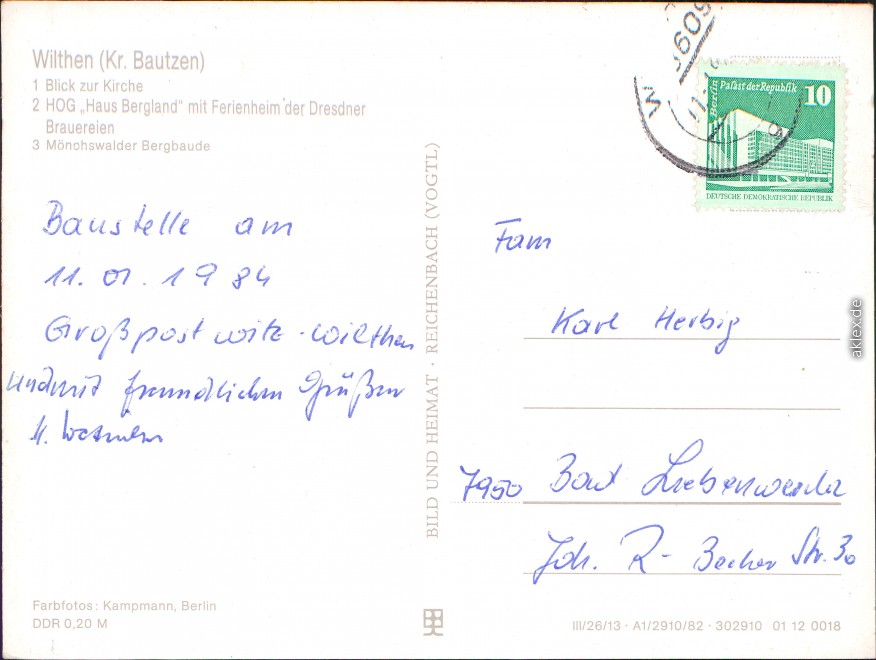 Wilthen (Kr. Bautzen)
1 Blick zur Kirche
2 HOG „Haus Bergland" mit Ferienheim der Dresdner
Brauereien
3 Mönchswalder Bergbaude
Baustelle am
11. 01. 1984
Großpostwitz-Wilthen
und mit freundlichen Grüßen
Farbfotos: Kampmann, Berlin
DDR 0,20 M
BILD UND HEIMAT · REICHENBACH (VOGTL)
Berlin
Palast der Republik
10
DEUTSCHE DEMOKRATISCHE REPUBLIK
Fam
Karl Herbig
7950 Bad Liebenwerda
Joh. R- Becher Str. 30
III/26/13 · A1/2910/82 · 302910 01 12 0018
aklex.de